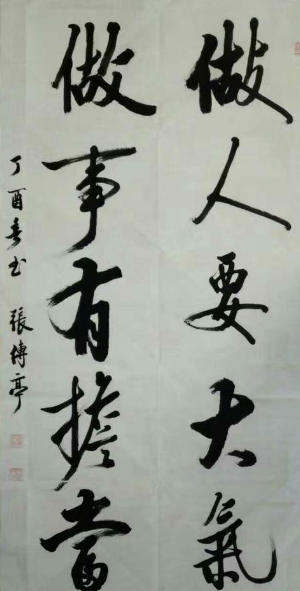 做人要大氣
做事有擔當
丁酉春书 張傳亭